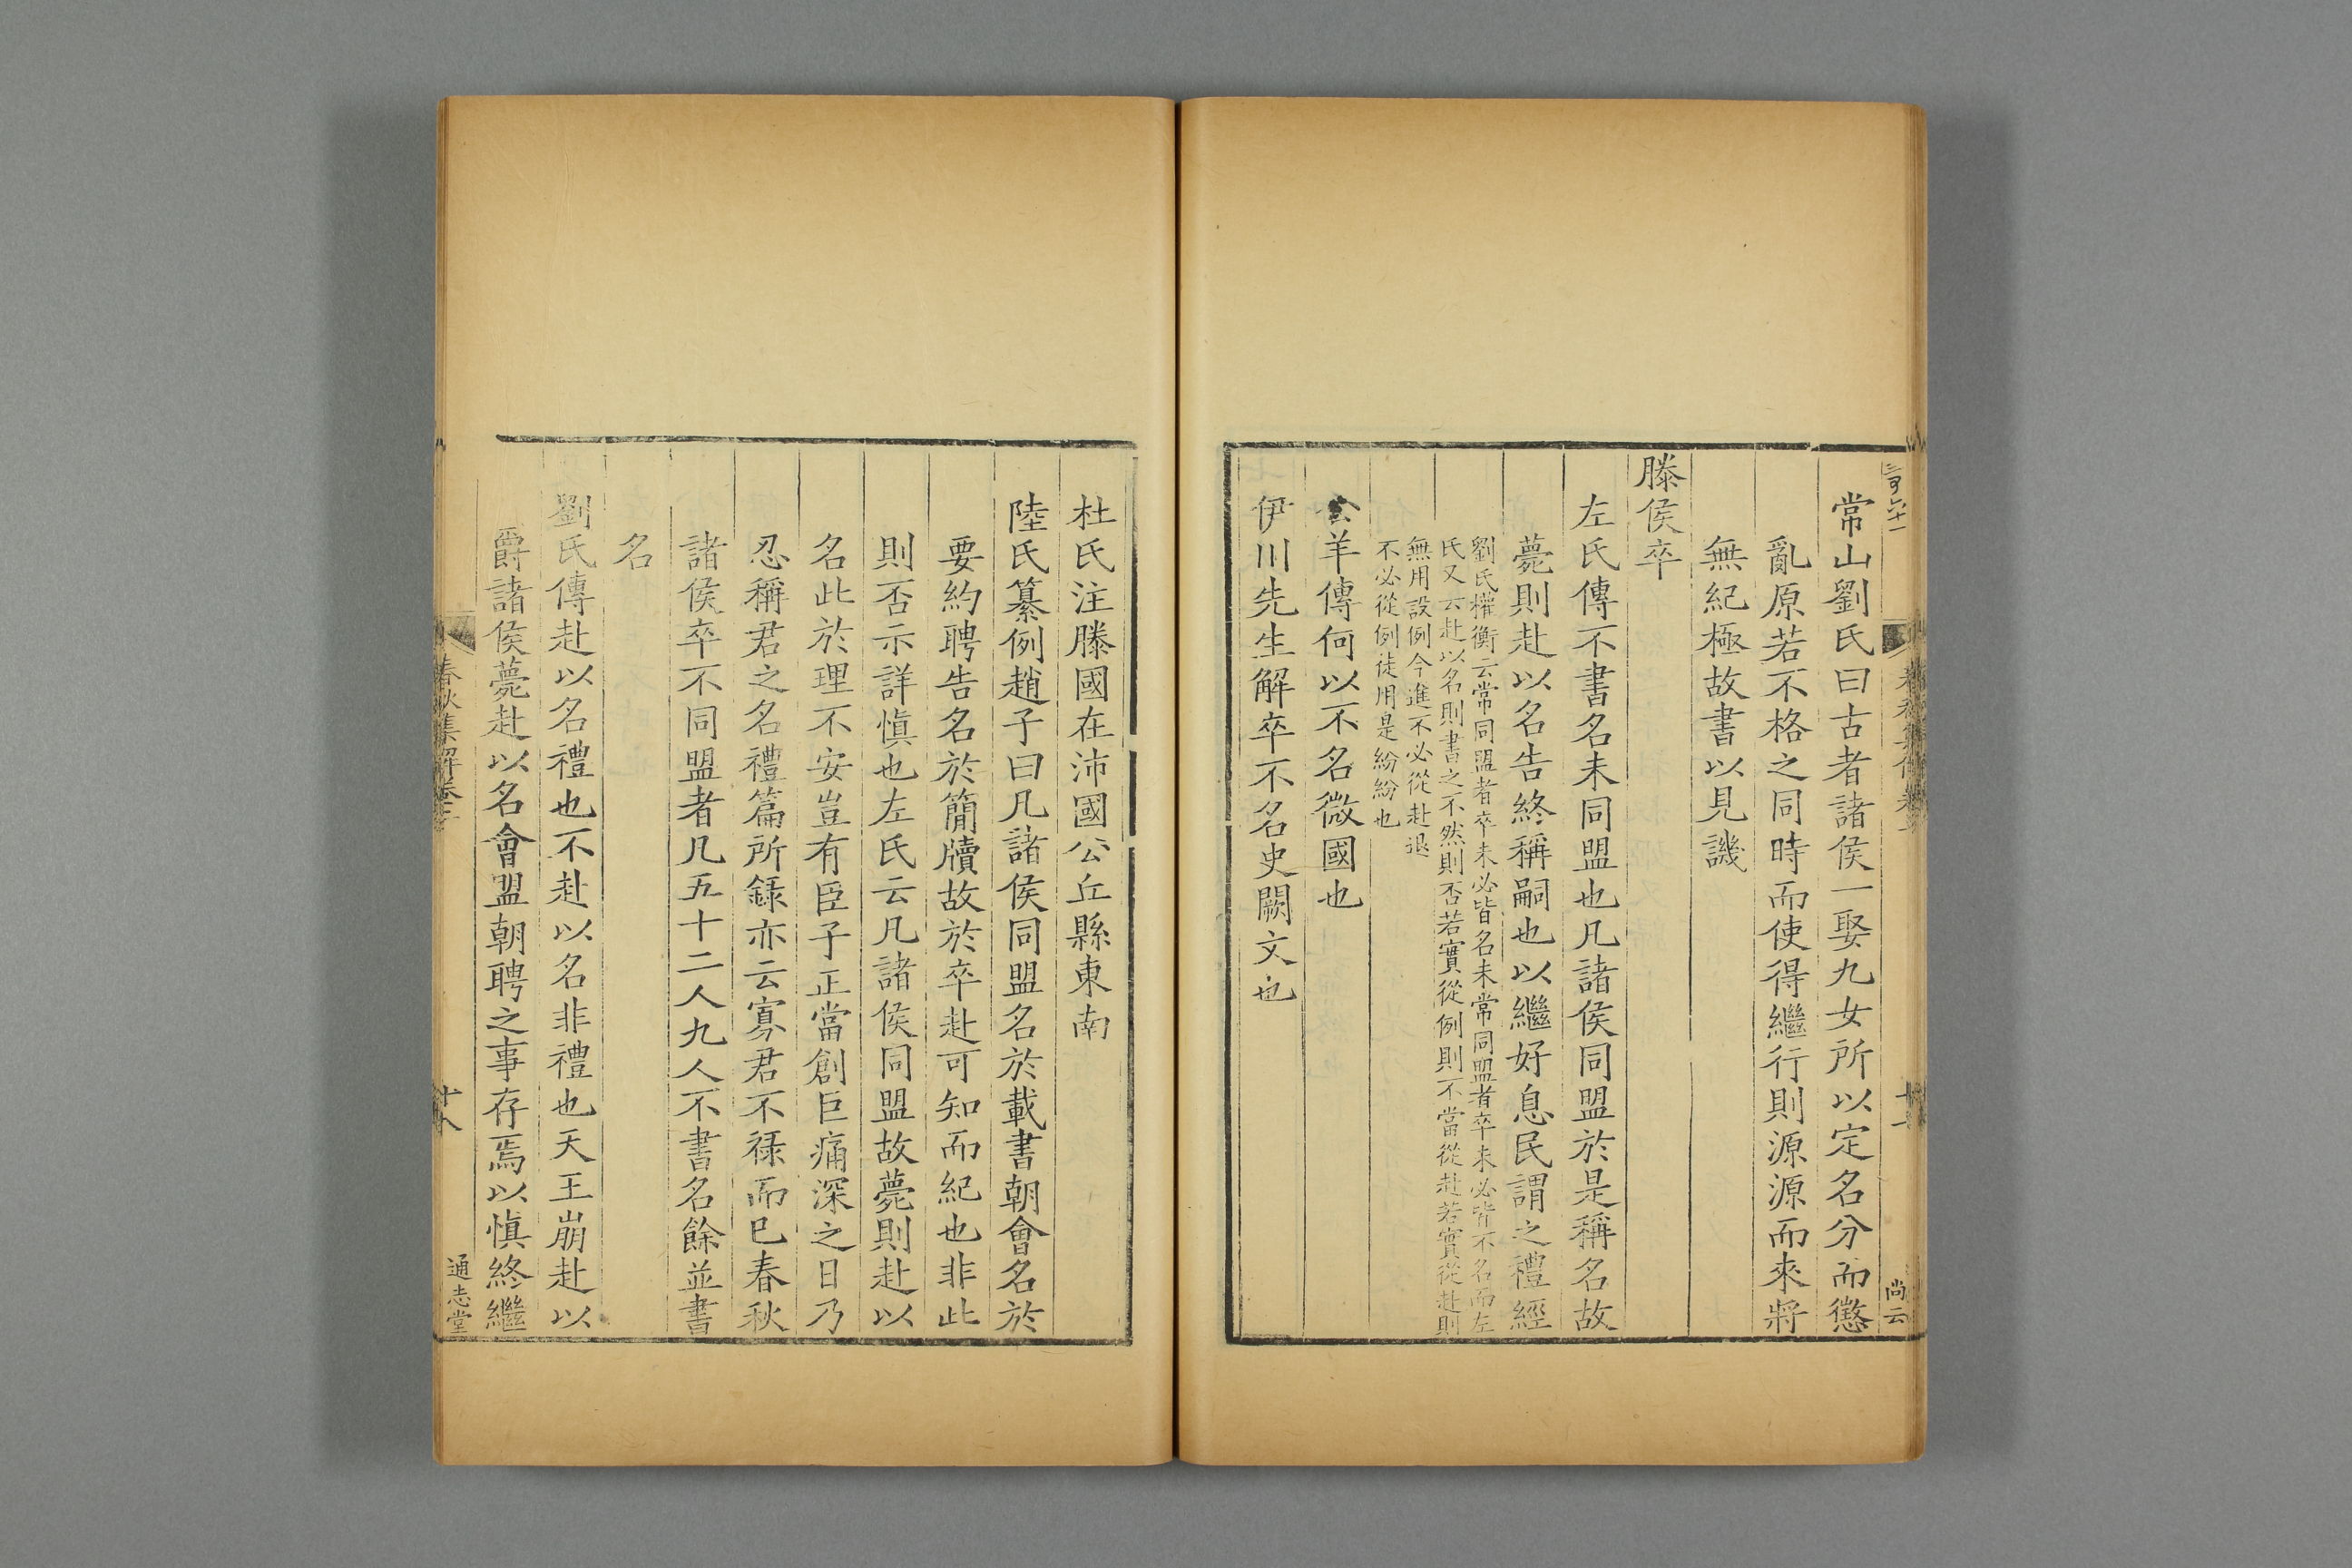 常山劉氏曰古者諸侯一娶九女所以定名分而懲
亂原若不格之同時而使得繼行則源源而來將
無紀極故書以見譏
滕侯卒
左氏傳不書名未同盟也凡諸侯同盟於是稱名故
薨則赴以名告終稱嗣也以繼好息民謂之禮經
劉氏權衡云常同盟者卒未必皆名未常同盟者卒未必皆不名而左
氏又云赴以名則書之不然則否若實從例則不當從赴若實從赴則
無用設例今進不必從赴退
不必從例徒用是紛紛也
公羊傳何以不名微國也
伊川先生解卒不名史闕文也
杜氏注滕國在沛國公丘縣東南
陸氏纂例趙子曰凡諸侯同盟名於載書朝會名於
要約聘告名於簡牘故於卒赴可知而紀也非此
則否示詳慎也左氏云凡諸侯同盟故薨則赴以
名此於理不安豈有臣子正當創巨痛深之日乃
忍稱君之名禮篇所録亦云寡君不祿而已春秋
諸侯卒不同盟者凡五十二人九人不書名餘並書
名
劉氏傳赴以名禮也不赴以名非禮也天王崩赴以
爵諸侯薨赴以名會盟朝聘之事存焉以慎終繼
春秋集解卷三
十八
通志堂
尚云